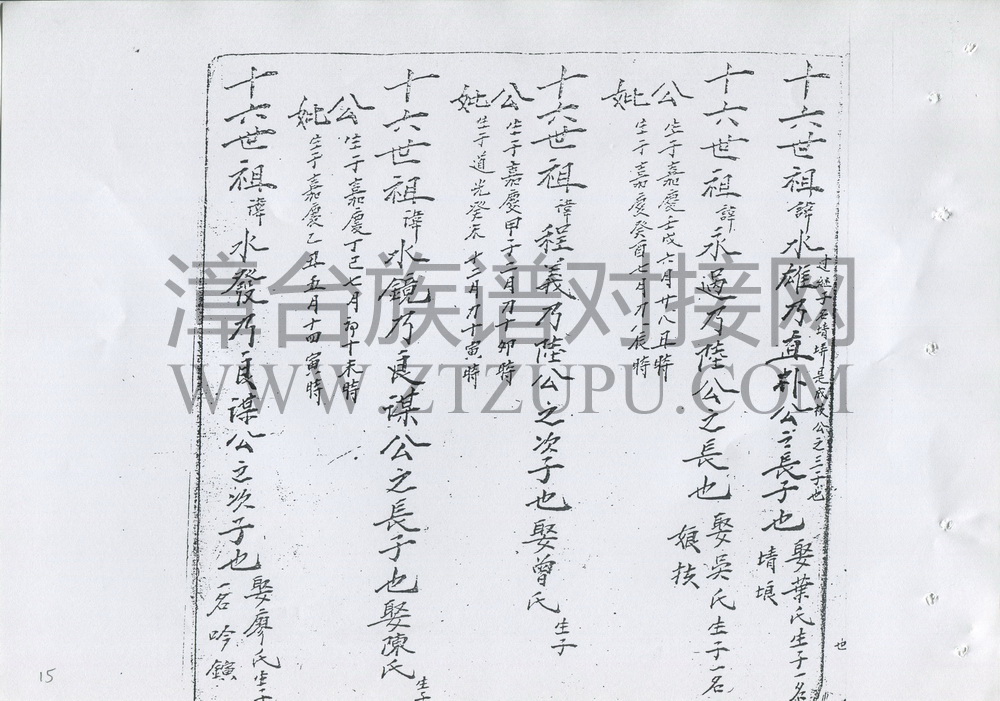 过继子名堉
是成
公之三子也
十六世祖諱水雄乃直朴公之長子也娶葉氏生子一名
堉埌
十六世祖諱永過乃陸公之長也娶吳氏生子一名
娘扶
公生于嘉慶壬戌六月廿八丑時
妣生于嘉慶癸酉七月初八辰時
十六世祖諱程義乃陸公之次子也娶曾氏生子
公生于嘉慶甲子二月初十卯時
妣生于道光癸十二月初十寅時
十六世祖諱水鏡乃良謀公之長子也娶陳氏生子
公生于嘉慶丁巳七月初十未時
妣生于嘉慶乙丑五月十四寅時
十六世祖諱水發乃良謀公之次子也娶廖氏生子
一名吟鐄
漳台族谱对接网
WWW.ZTZUPU.COM
15